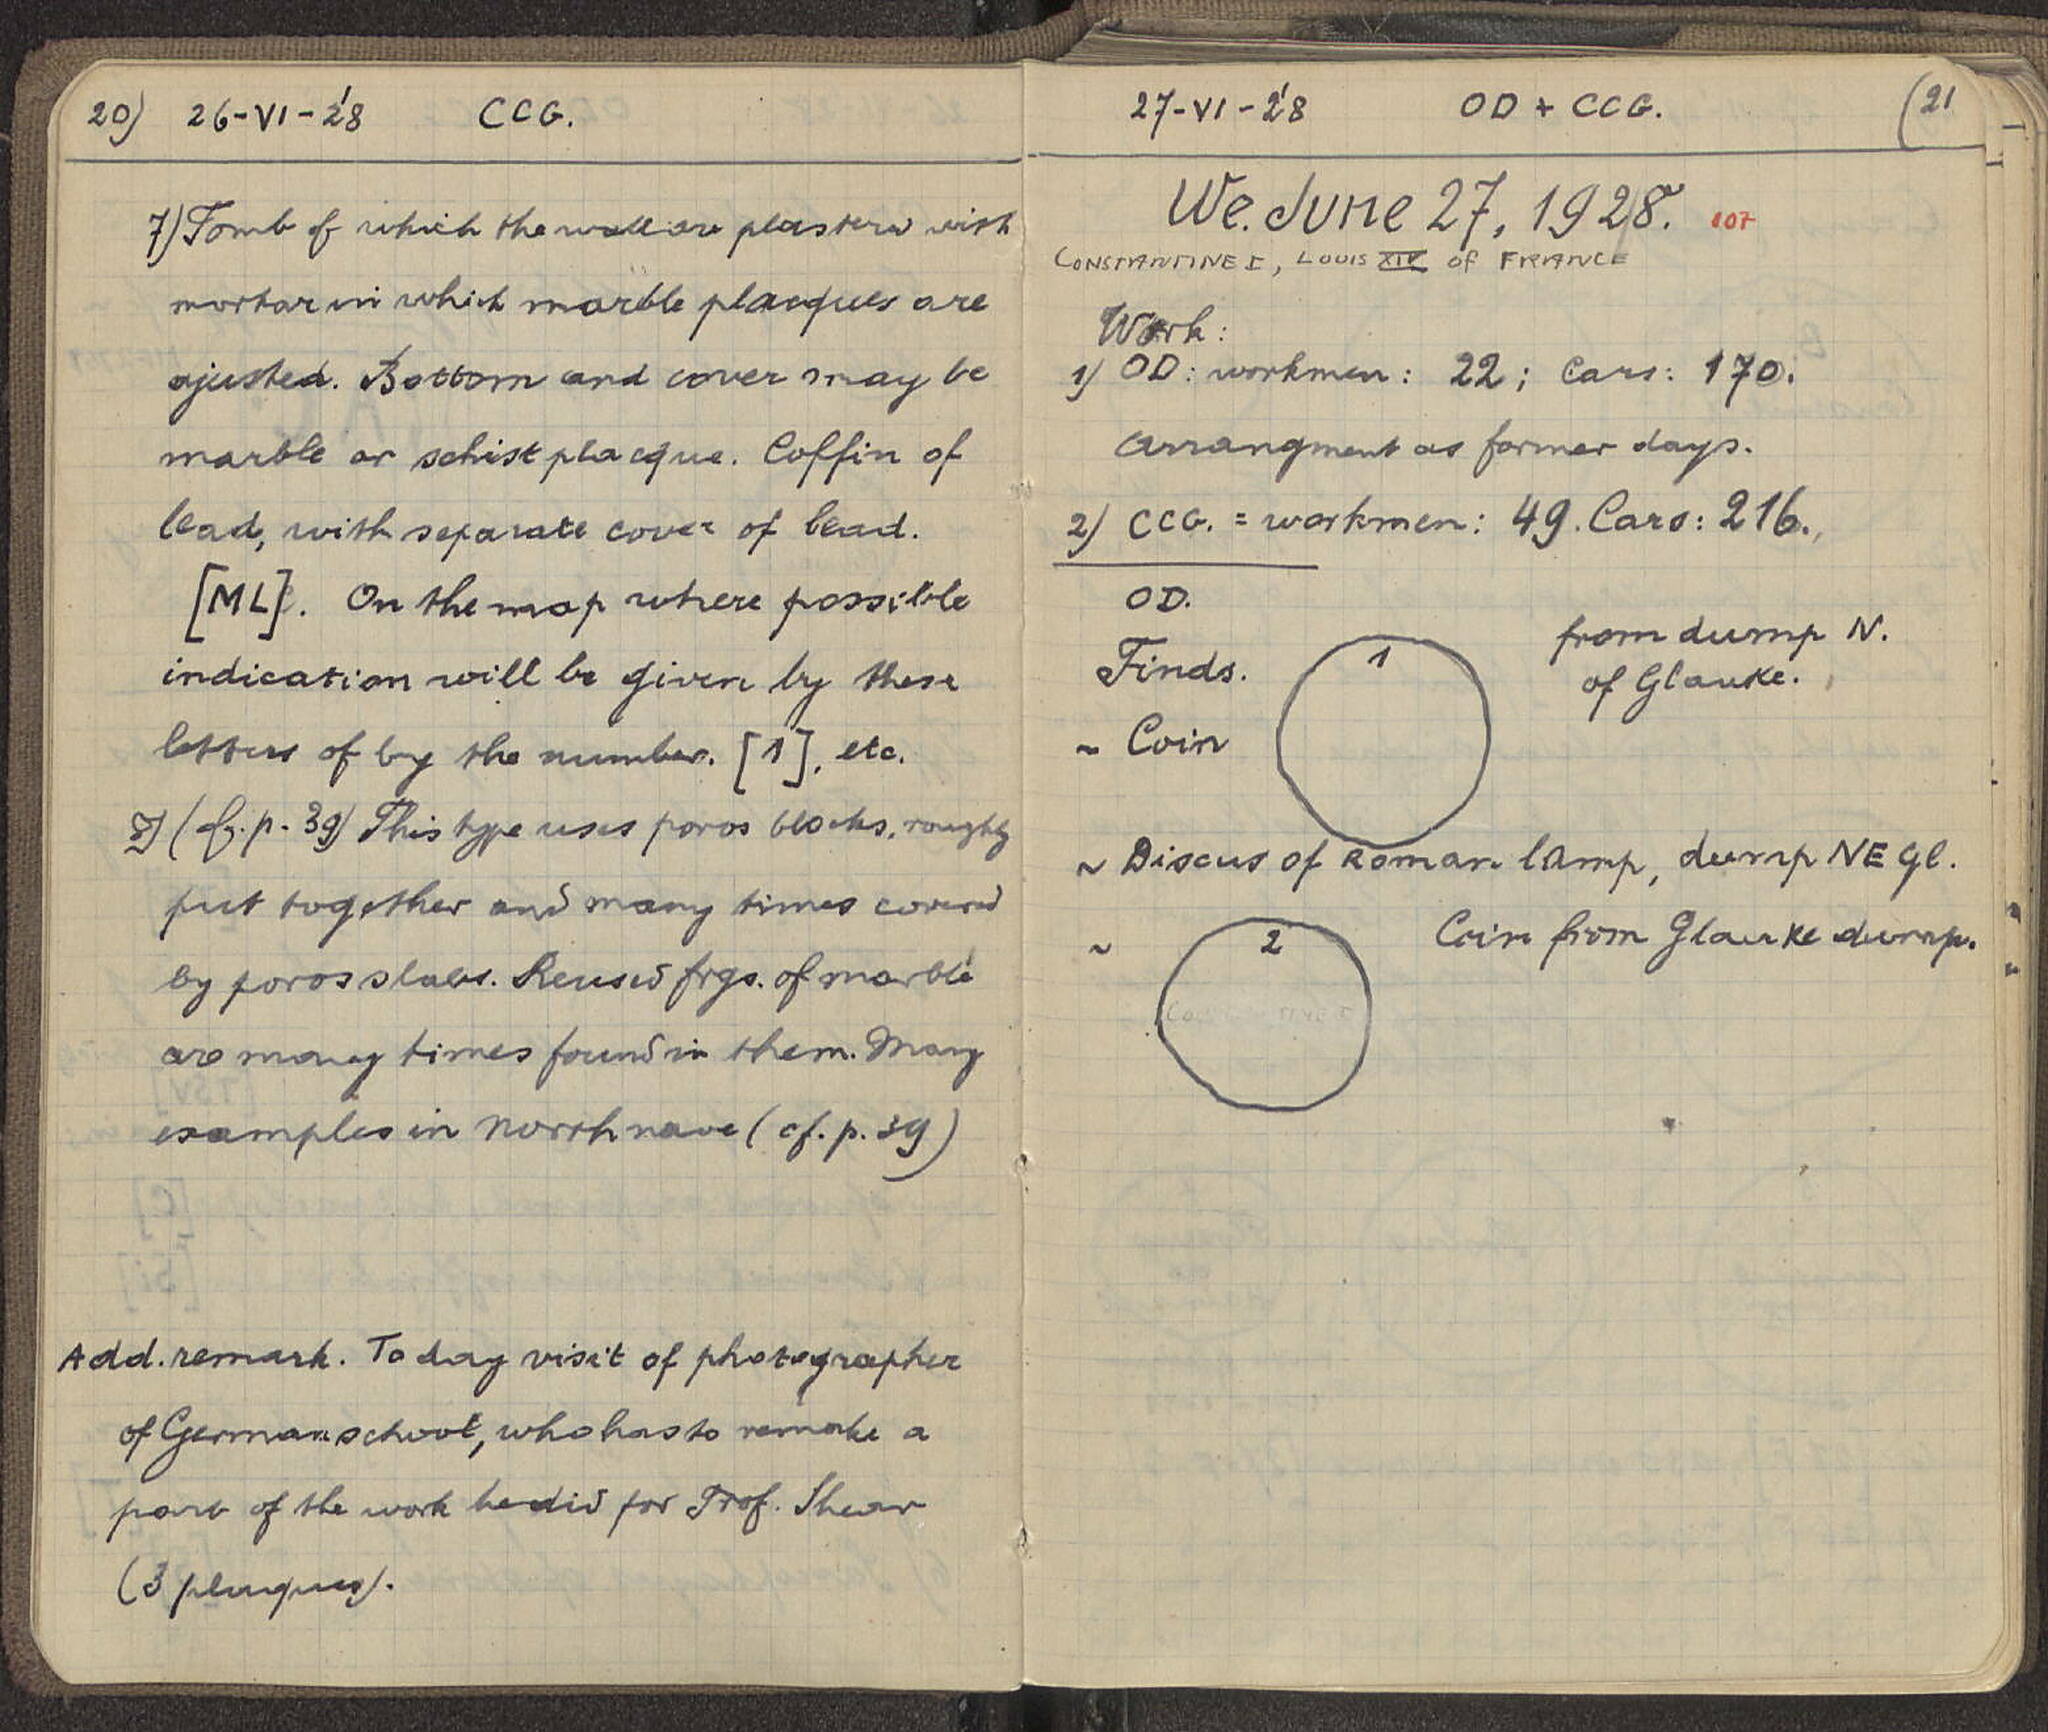 20) 26-VI-'28 CCG.
7) Tomb of which the wall are plastered with
mortar in which marble placques are
ajusted. Bottom and cover may be
marble or schist placque. Coffin of
lead, with separate cover of lead.
[ML]. On the map where possible
indication will be given by these
letters of by the number. [1], etc.
8) (cf. p. 39) This type uses poros blocks, roughly
put together and many times covered
by poros slabs. Reused frgs. of marble
are many times found in them. Many
examples in North nave (cf. p. 39)
Add. remark. To day visit of photographer
of German school, who has to remake a
part of the work he did for Prof. Shear
(3 plaques).
27-VI-'28 OD + CCG. (21
We. June 27, 1928. 107
CONSTANTINE I, LOUIS XIV OF FRANCE
Work:
1) OD: workmen: 22; Cars: 170.
Arrangment as former days.
2) CCG. = workmen: 49. Cars: 216.
OD.
Finds. 1 from dump N.
of Glauke.
~ Coin
~ Discus of Roman lamp, dump NE Gl.
~ 2 Coin from Glauke dump.
CONSTANTINE I